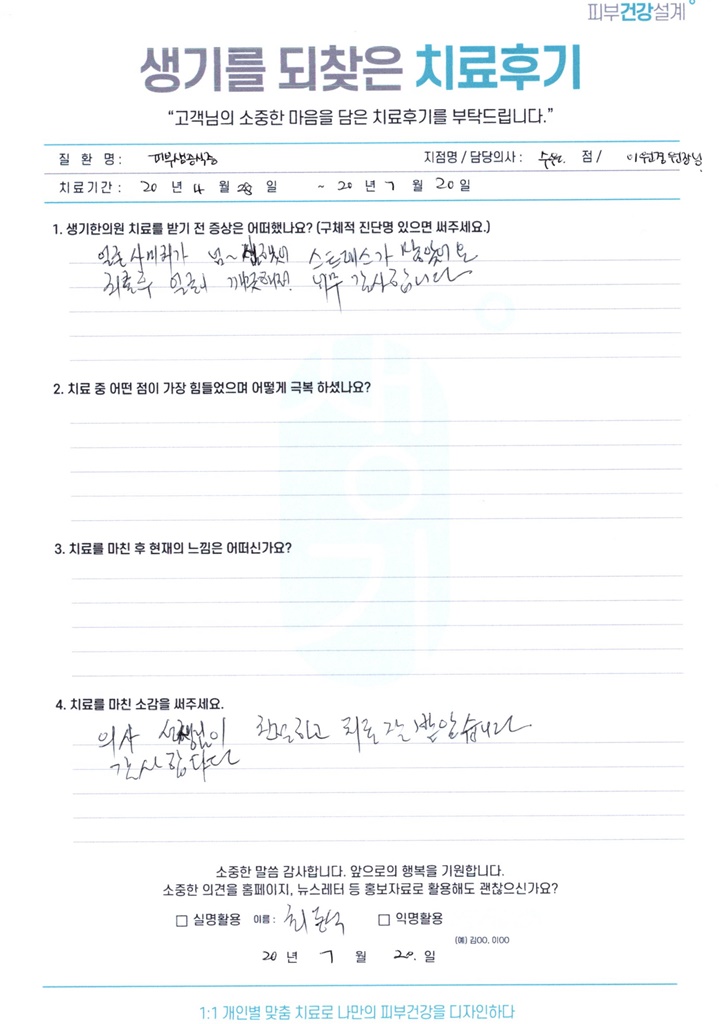 피부건강설계
생기를 되찾은 치료후기
“고객님의 소중한 마음을 담은 치료후기를 부탁드립니다.”
질 환 명 : 지점명 / 담당의사 : 수원 점 / 이원경 원장님
치료기간 : 20 년 4 월 28 일 ~ 20 년 7 월 20 일
1. 생기한의원 치료를 받기 전 증상은 어떠했나요? (구체적 진단명 있으면 써주세요.)
얼굴 사마귀가 넘~ 스트레스가 많았어요
치료후 얼굴이 깨끗해져 너무 감사합니다
2. 치료 중 어떤 점이 가장 힘들었으며 어떻게 극복 하셨나요?
3. 치료를 마친 후 현재의 느낌은 어떠신가요?
4. 치료를 마친 소감을 써주세요.
의사 선생님이 친절하고 치료 잘 받았습니다
감사합니다
생기
소중한 말씀 감사합니다. 앞으로의 행복을 기원합니다.
소중한 의견을 홈페이지, 뉴스레터 등 홍보자료로 활용해도 괜찮으신가요?
실명활용 이름 : 최 익명활용
(예) 김OO, 이OO
20 년 7 월 20. 일
1:1 개인별 맞춤 치료로 나만의 피부건강을 디자인하다